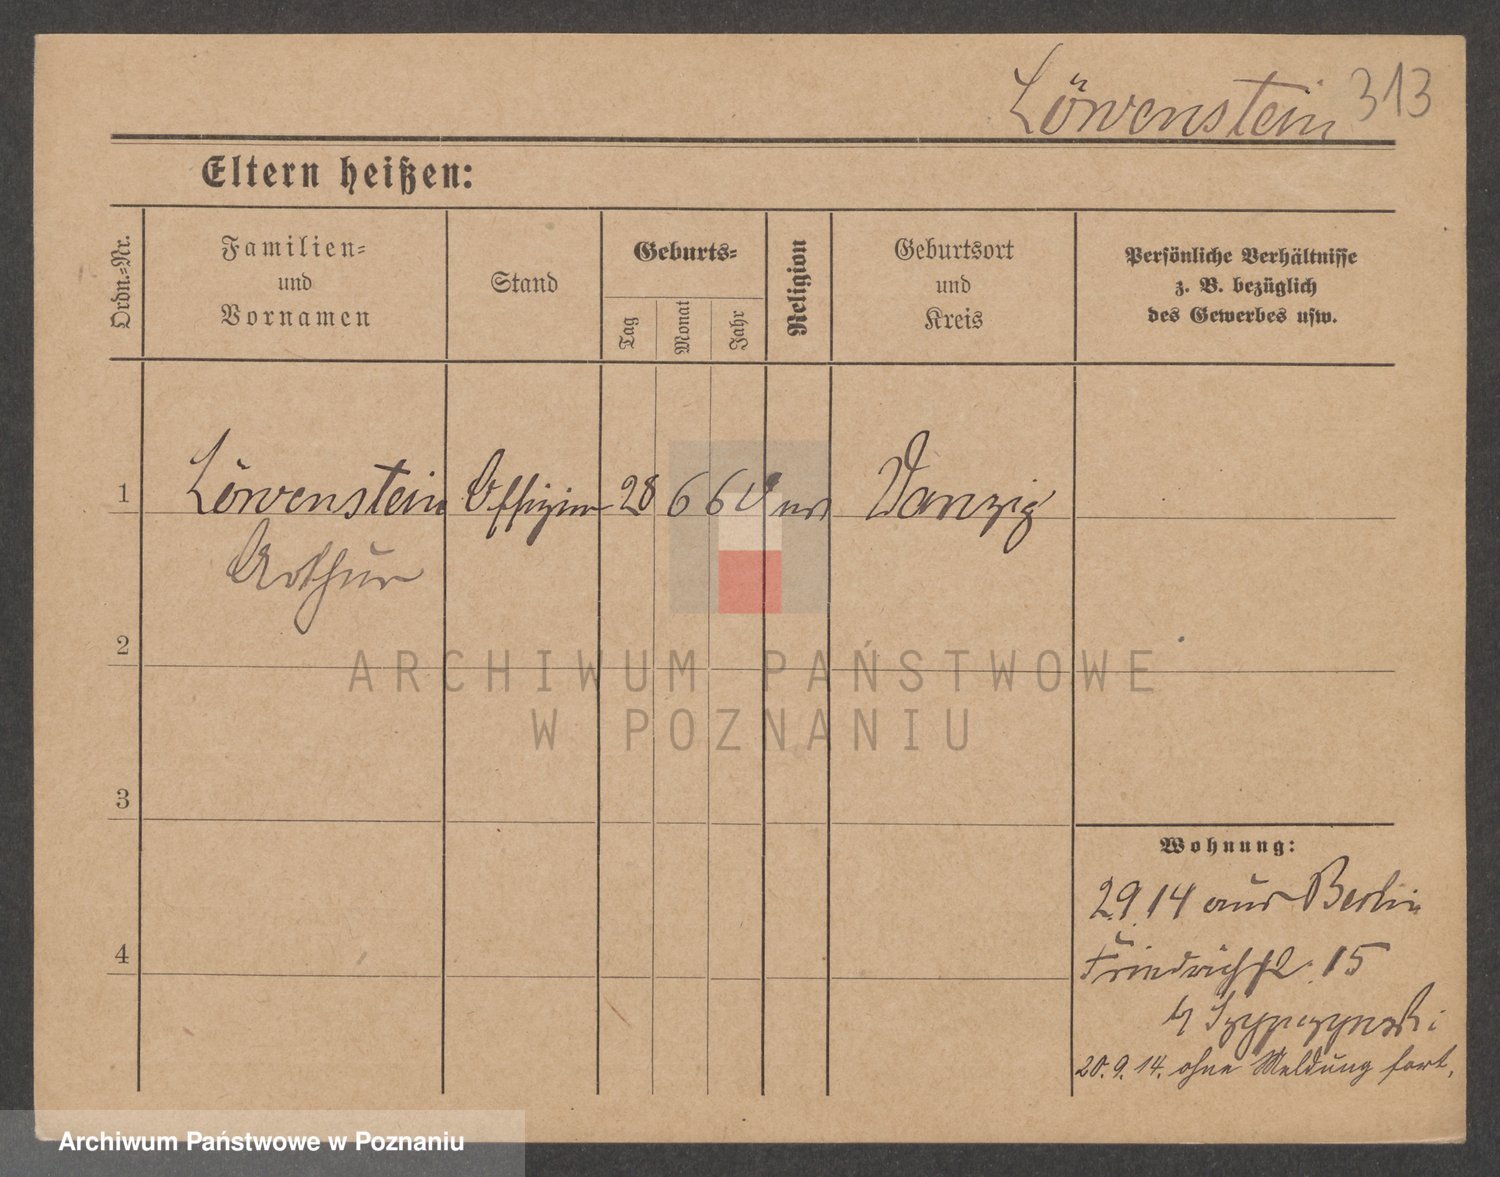 Löwenstein 313
Eltern heißen:
Ordn.=Nr.
Familien=
und
Vornamen
Stand
Geburts=
Tag
Monat
Jahr
Religion
Geburtsort
und
Kreis
Persönliche Verhältnisse
z. B. bezüglich
des Gewerbes usw.
1 Löwenstein Offizier 28 6 60 Danzig
Arthur
2
3
4
Wohnung:
2.9.14 aus Berlin
15
Szypczynski
20. 9. 14. ohne Meldung fort.
ARCHIWUM PAŃSTWOWE
W POZNANIU
Archiwum Państwowe w Poznaniu